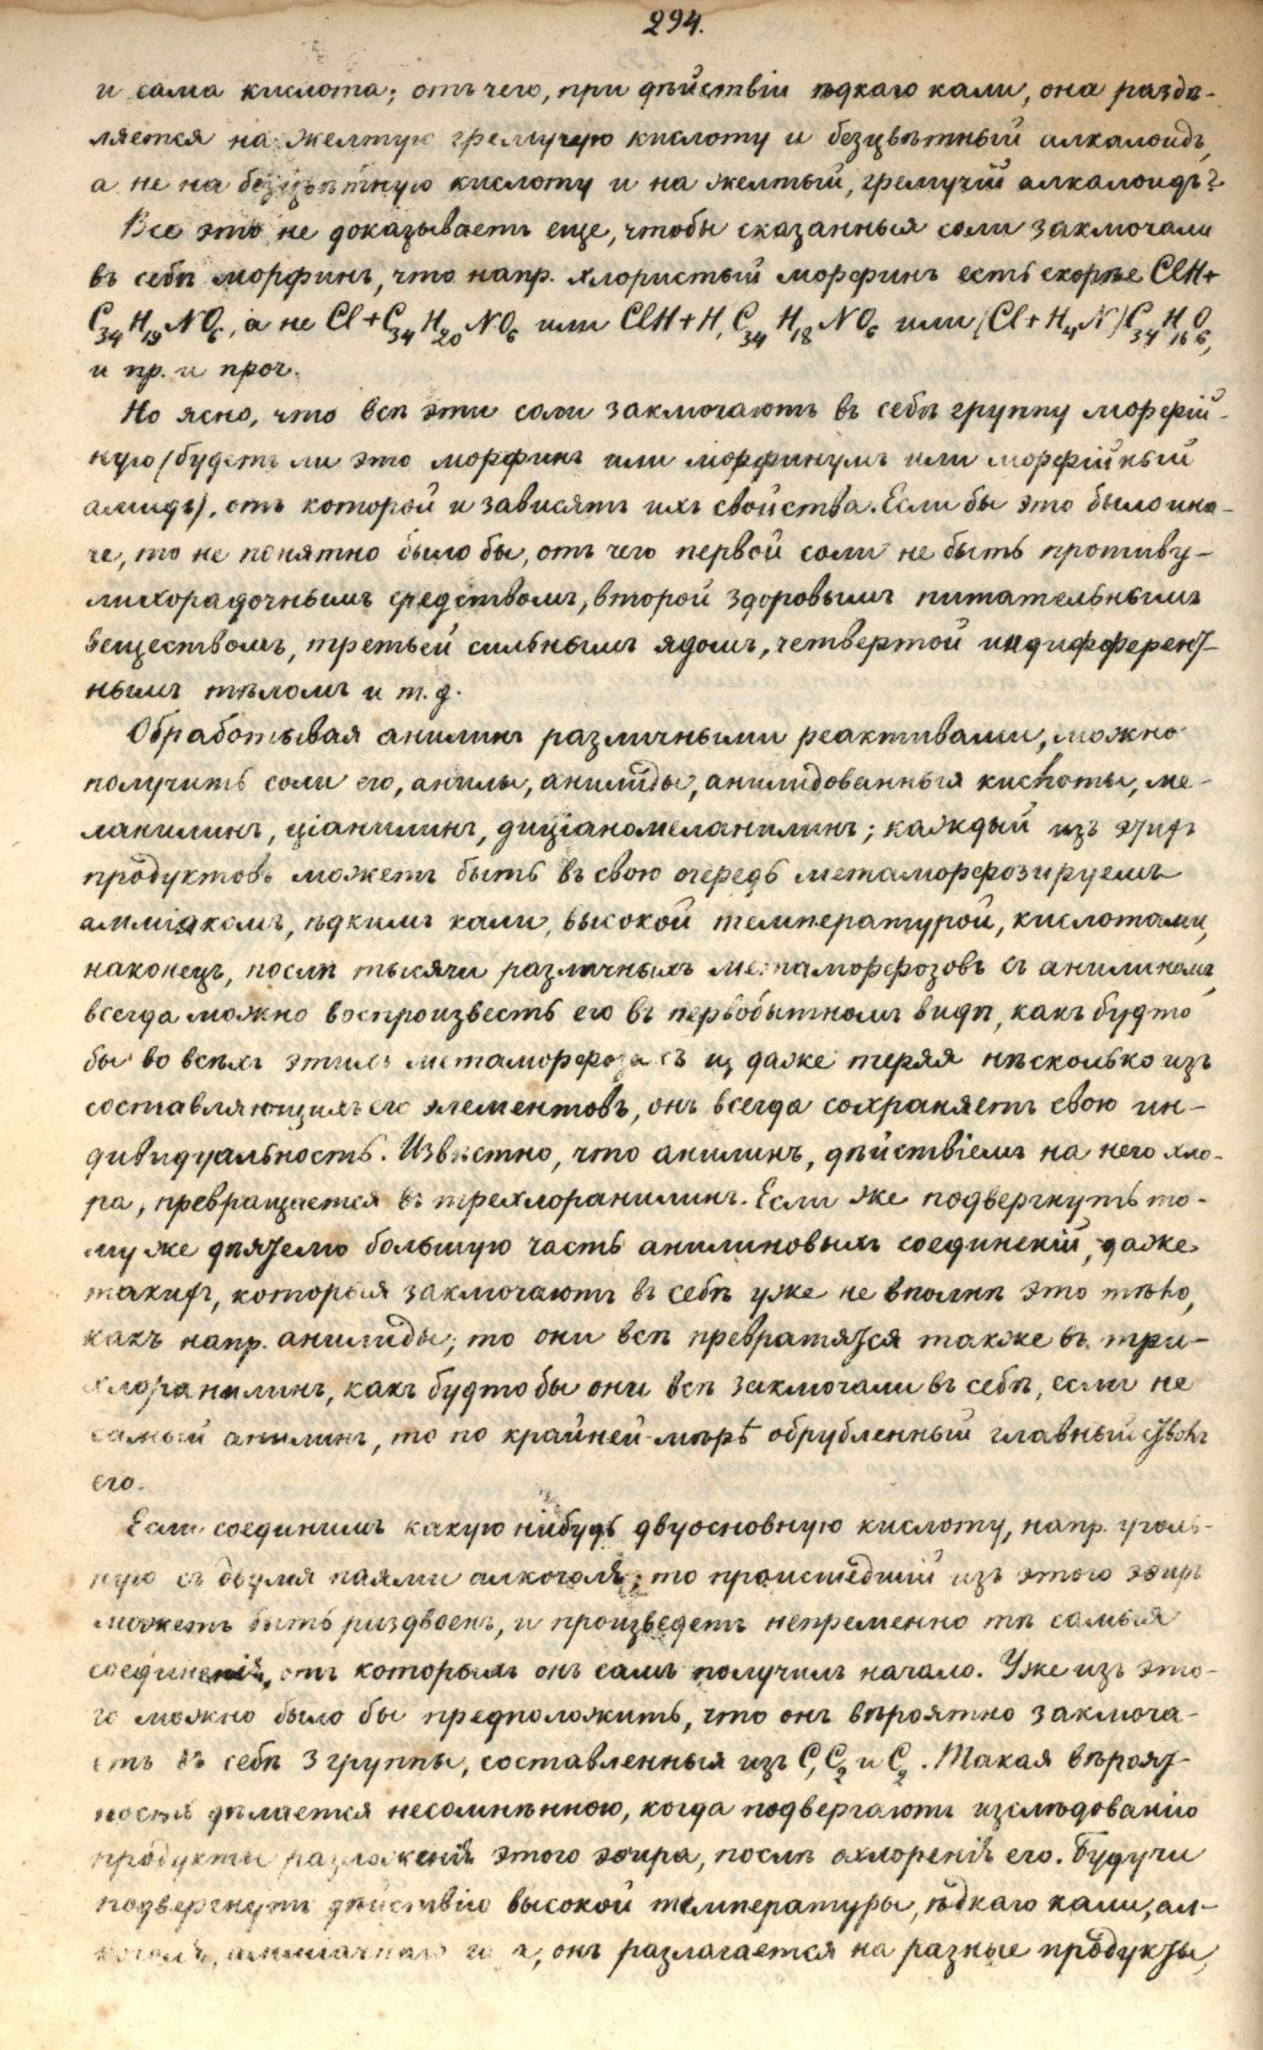 294.
и сама кислота; отъ чего, при дѣйствіи ѣдкаго кали, она раздѣ-
ляется на желтую гремучую кислоту и безцвѣтный алкалоидъ,
а не на безцвѣтную кислоту и на желтый, гремучій алкалоидъ?
Все это не доказываетъ еще, чтобы сказанныя соли заключали
въ себѣ морфинъ, что напр. хлористый морфинъ есть скорѣе ClH+
C₃₄H₁₉NO₆, а не Cl+C₃₄H₂₀NO₆ или ClH+H, C₃₄H₁₈NO₆ или (Cl+H₄N)C₃₄H₁₆O₆,
и пр. и проч.
Но ясно, что всѣ эти соли заключаютъ въ себѣ группу морфій-
ную (будетъ ли это морфинъ или морфинумъ или морфійный
амидъ), отъ которой и зависятъ ихъ свойства. Если бы это было ина-
че, то не понятно было бы, отъ чего первой соли не быть противу-
лихорадочнымъ средствомъ, второй здоровымъ питательнымъ
веществомъ, третьей сильнымъ ядомъ, четвертой индифферент-
нымъ тѣломъ и т.д.
Обработывая анилинъ различными реактивами, можно
получить соли его, анилы, анилиды, анилидованныя кислоты, ме-
ланилинъ, ціанилинъ, диціаномеланилинъ; каждый изъ этихъ
продуктовъ можетъ быть въ свою очередь метаморфозируемъ
амміакомъ, ѣдкимъ кали, высокой температурой, кислотами,
наконецъ, послѣ тысячи различныхъ метаморфозовъ съ анилиномъ,
всегда можно воспроизвесть его въ первобытномъ видѣ, какъ будто
бы во всѣхъ этихъ метаморфозахъ и, даже теряя нѣсколько изъ
составляющихъ его элементовъ, онъ всегда сохраняетъ свою ин-
дивидуальность. Извѣстно, что анилинъ, дѣйствіемъ на него хло-
ра, превращается въ трехлоранилинъ. Если же подвергнуть то-
му же дѣятелю большую часть анилиновыхъ соединеній, даже
такихъ, которыя заключаютъ въ себѣ уже не вполнѣ это тѣло,
какъ напр. анилиды; то они всѣ превратятся также въ три-
хлоранилинъ, какъ будто бы они всѣ заключали въ себѣ, если не
самый анилинъ, то по крайней мѣрѣ обрубленный главный стволъ
его.
Если соединимъ какую нибудь двуосновную кислоту, напр. уголь-
ную съ двумя паями алкоголя; то происшедшій изъ этого эѳиръ
можетъ быть раздвоенъ, и произведетъ непременно тѣ самыя
соединенія, отъ которыхъ онъ самъ получилъ начало. Уже изъ это-
го можно было бы предположить, что онъ вѣроятно заключа-
етъ въ себѣ 3 группы, составленныя изъ C, C₂ и C₂. Такая вѣроят-
ность дѣлается несомнѣнною, когда подвергаютъ изслѣдованію
продукты разложенія этого эѳира, послѣ охлоренія его. Будучи
подвергнутъ дѣйствію высокой температуры, ѣдкаго кали, ал-
коголя, амміачнаго газа, онъ разлагается на разные продукты,